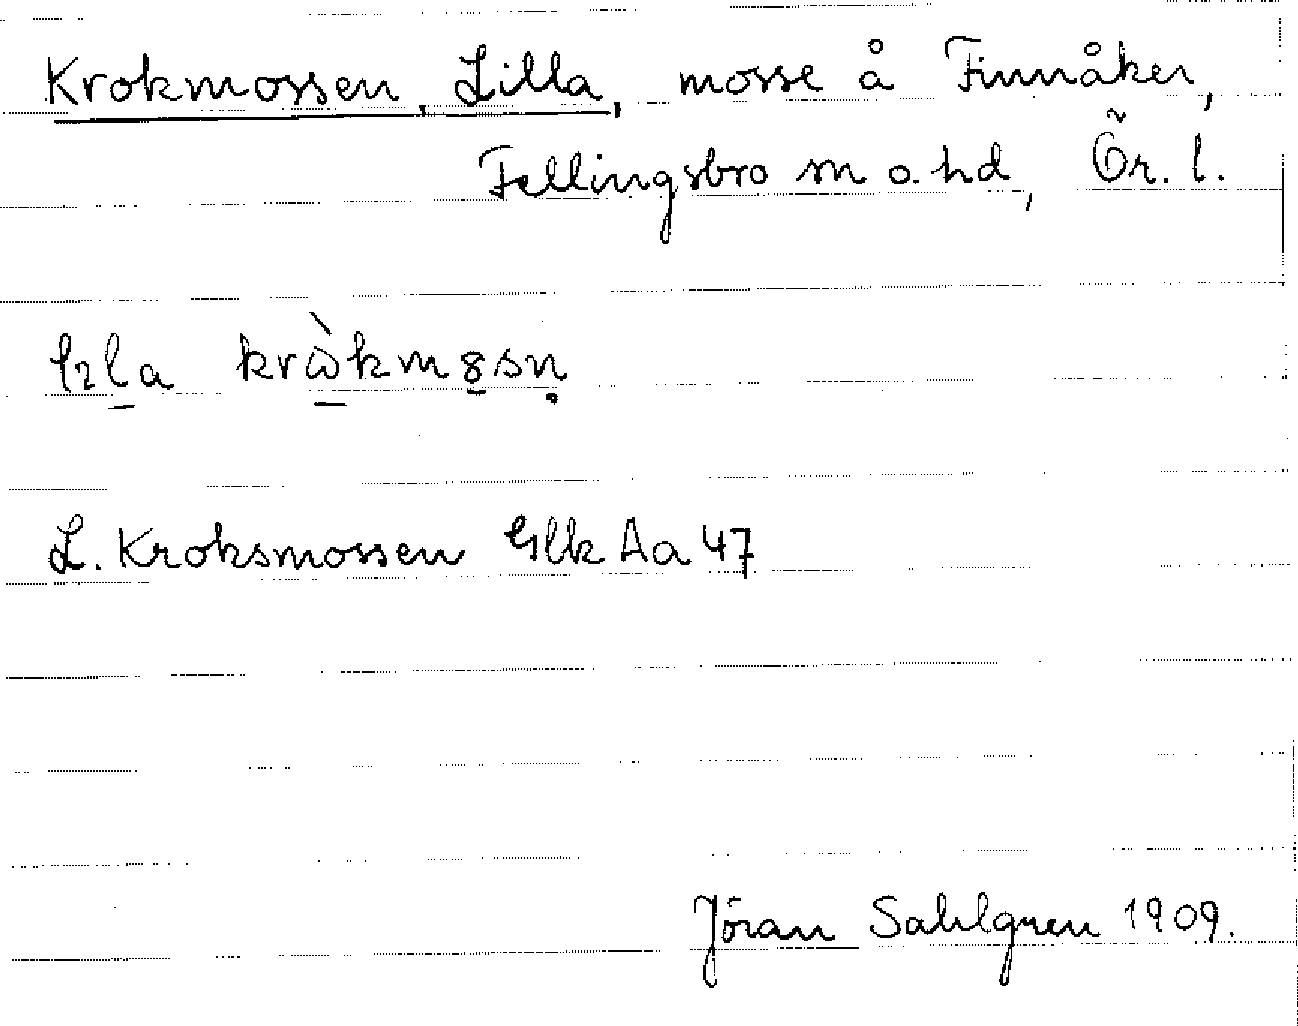 Krokmossen, Lilla, mosse å Finnåker,
Fellingsbro sn o. hd, Ör. l.
lıla kròkmȣsn̥
L. Kroksmossen Glk Aa 47
Jöran Sahlgren 1909.